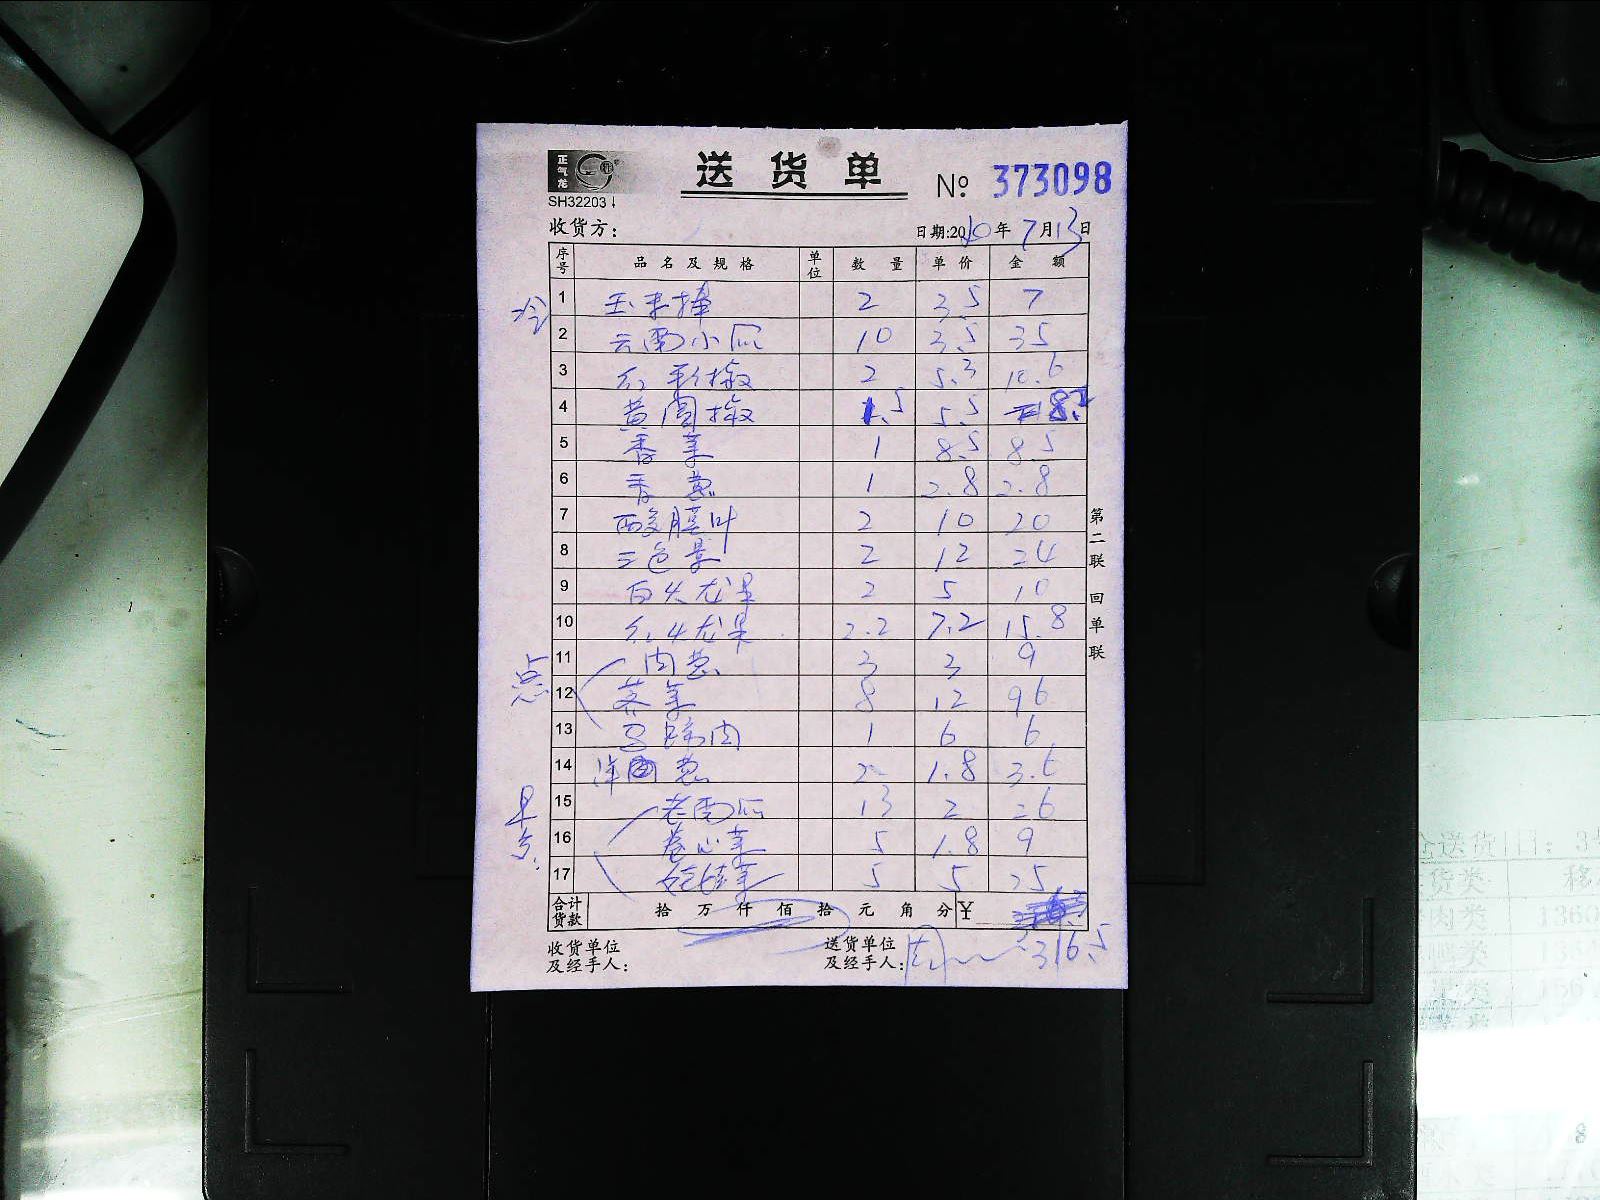 正气龙
送货单 № 373098
SH32203
收货方： 日期:2020年7月13日
序号 品名及规格 单位 数量 单价 金额
冷
1 玉米棒 2 3.5 7
2 云南小瓜 10 3.5 35
3 红彩椒 2 5.3 10.6
4 黄圆椒 1.5 5.5 8.2
5 香菜 1 8.5 8.5
6 香葱 1 2.8 2.8
7 酸膜叶 2 10 20
8 三色堇 2 12 24
9 白火龙果 2 5 10
10 红火龙果 2.2 7.2 15.8
点
11 肉葱 3 3 9
12 荠菜 8 12 96
13 马蹄肉 1 6 6
14 洋葱 2 1.8 3.6
早点
15 老南瓜 13 2 26
16 卷心菜 5 1.8 9
17 娃娃菜 5 5 25
合计货款 拾万仟佰拾元角分 ¥
316.5
收货单位及经手人：
送货单位及经手人：
第二联 回单联
送货日：
货类
肉类 1360